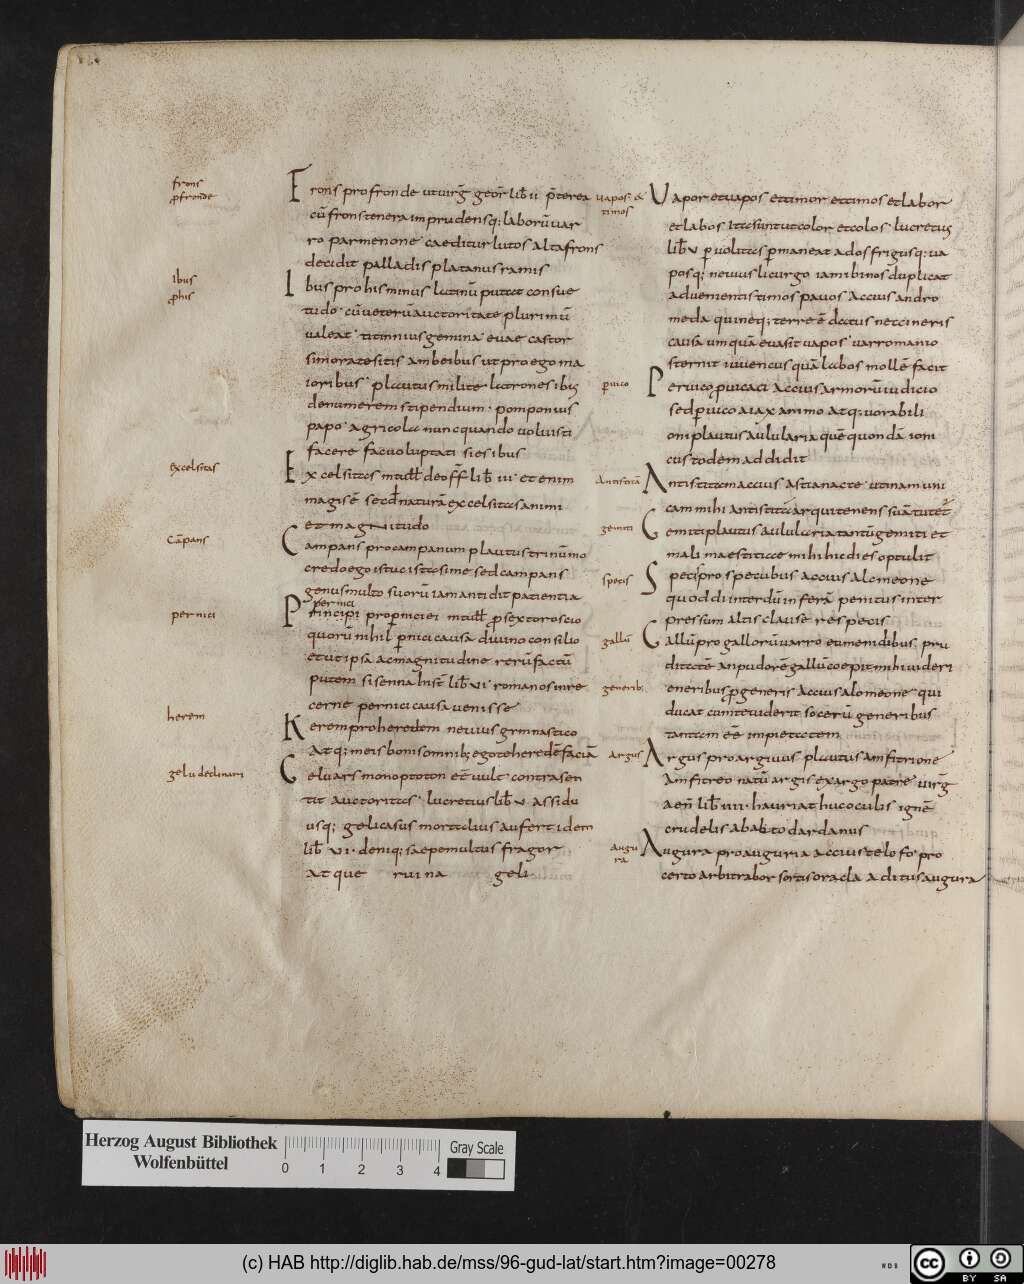 frons
ꝓfronde
Frons pro fronde ut uirḡ geor̄ lib̄ ii p̄terea
cū frons tenera imprudensq; laborū uar
ro parmenone caeditur lutos alta frons
decidit palladis platanus ramis
Ibus
ꝓhis
Ibus pro his minus latinū putat consue
tudo cū ueterū auctoritate plurimū
ualeat titinnius gemina euae castor
simoratesitis ambeibus ut pro ego ma
ioribus plautus milite latrones ibus
denumerem stipendium pomponius
papo agricola nunc quando uoluisti
facere fac uoluptati sies ibus
Excelsitas
Excelsitas de off lib̄ iii et enim
magis ē secd naturā excelsitas animi
et magnitudo
Cāpans
Campans pro campanum plautus trinūmo
credo ego istuc istosime sed campans
genus multo suorū iam antidit patientia
per nici
pernici
Principi pro perniciei ꝓ sex toroscio
quorū nihil p̱nici causa diuino consilio
et ut ipsa ac magnitudine rerū factū
putem sisenna hist̄ lib̄ vi romanos inre
cerne pernici causa uenisse
herem
Kerem pro heredem neuius gymnastico
Atq; meis bonis omnib; ego te heredē faciā
gelu declinari
Gelu ars monoptoton eē uult contra sen
tit auctoritas lucretius lib̄ v assidu
usq; geli casus mortalius aufert idem
lib̄ vi deniq; saepe multus fragor
atque ruina geli
uapos &
timos
Vapor et uapos et timor et timos et labor
et labos Ita sunt ut color et colos lucretius
lib̄ v p̱uolitas p̱maneat ados frigusq; ua
posq; neuius licurgo iam ibi nos duplicat
aduenientis timos pauos Accius andro
meda quineq; terre ē datus nec cineris
causa umquā euasit uapos varro manio
sternit iuuencus quā labos mollē facit
p̱uico
Peruico p̱uicaci Accius armorū iudicio
sed p̱uico aiax animo atq; uorabili
om̄ plautus aulularia quē quondā ioni
custodem addidit
Antistitā
Antistitam accius Astianacte utinam uni
cam mihi antistitā arquitenens suā tutet̄
gemiti
Gemiti plautus aulularia tantū gemiti et
mali maestitiae mihi hic dies optulit
specis
Speci pro specubus Accius alcmeone
quod di interdū in ferā penitus inter
pressum altis clause res pecis
gallū
Gallū pro gallorū uarro eumenidibus pru
ditatē an pudorē gallū coepit mihi uideri
generib;
eneribus ꝓ generis Accius alcmeone qui
ducat cum te uiderit socerū generibus
tantam eē impietatem
Argus
Argus pro argiuus plautus amfitrione
Amfitreo natū argis ex argo patre uirḡ
aen̄ lib̄ iiii hauriat huc oculis ignē
crudelis ab alto dardanus
Augu
ra
Augura pro auguria accius telofo pro
certo arbitrabor sortis oracla aditus augura
Herzog August Bibliothek
Wolfenbüttel
0 1 2 3 4
Gray Scale
(c) HAB http://diglib.hab.de/mss/96-gud-lat/start.htm?image=00278
WDB
cc
BY SA